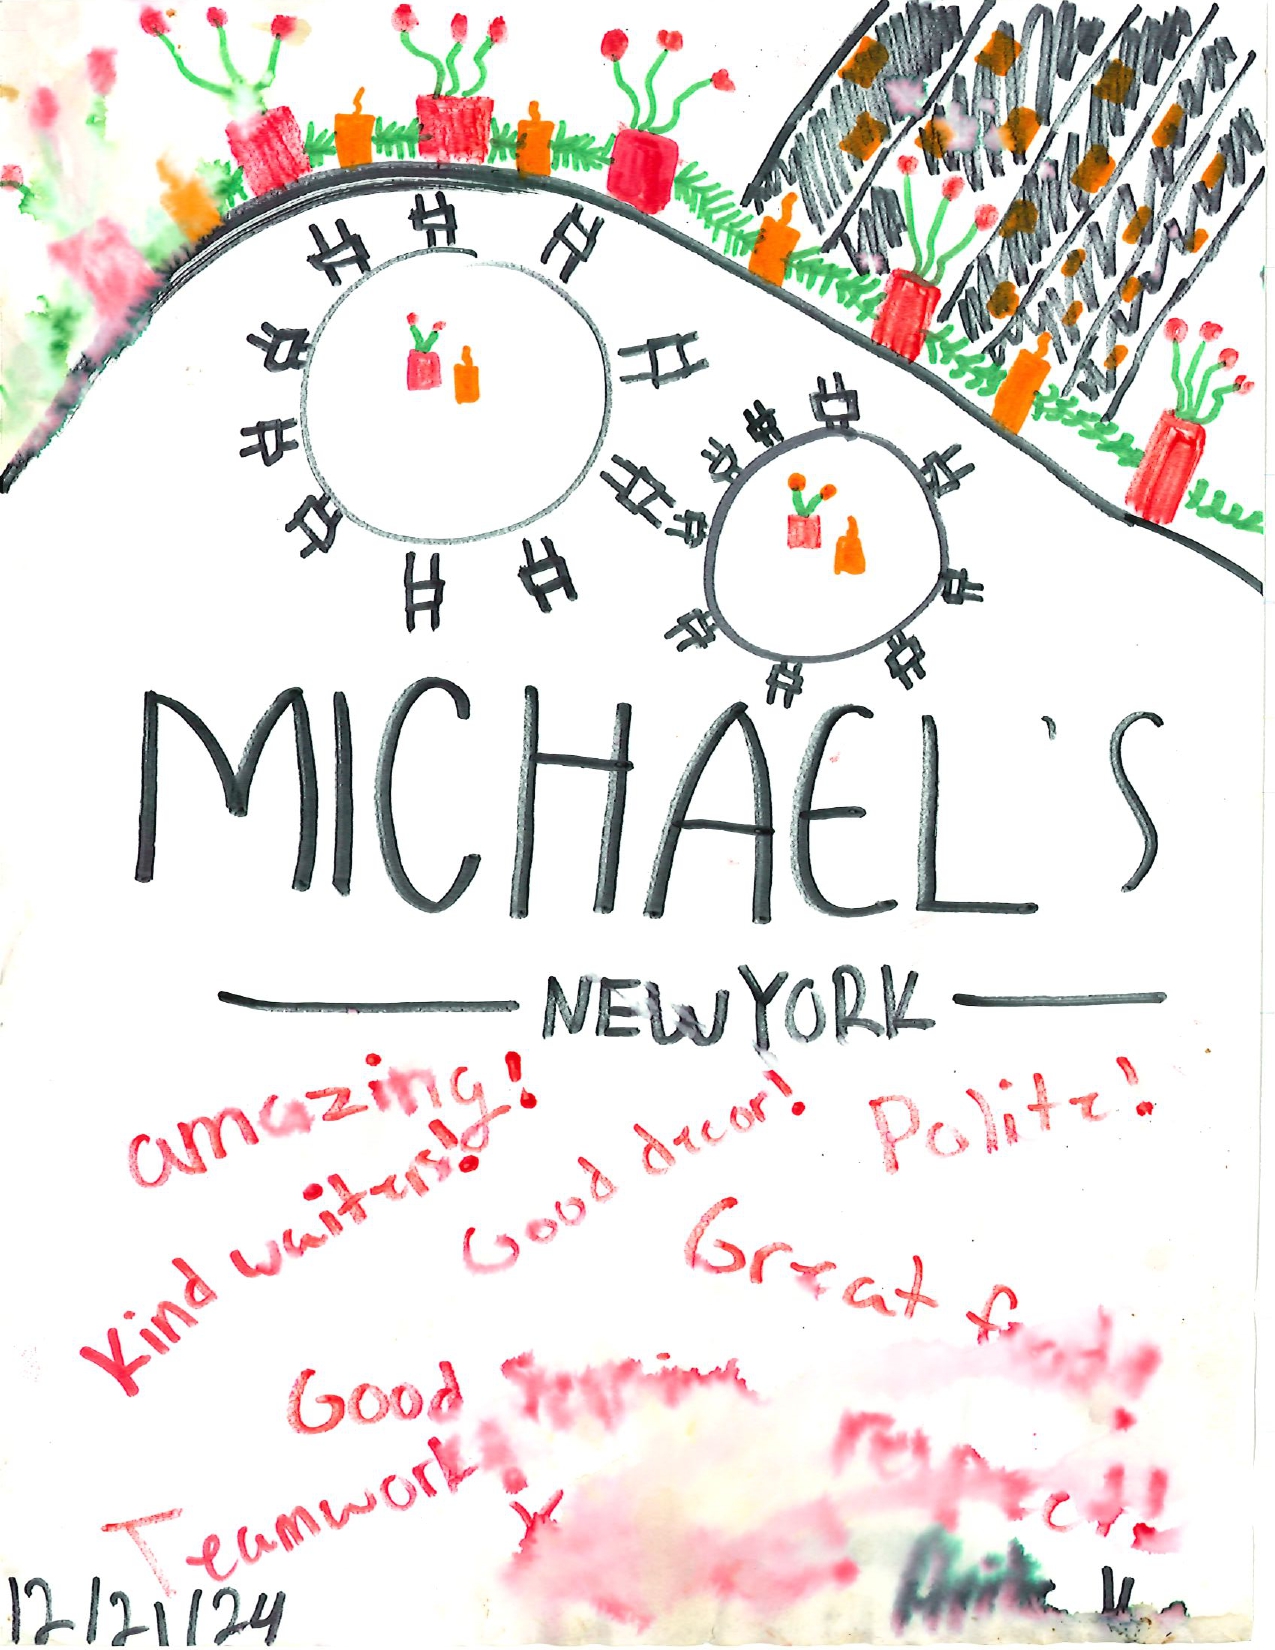 MICHAEL'S
NEW YORK
amazing!
Kind waiters!
Good decor!
Polite!
Great food!
Good
Teamwork!
respect!!
12/21/24